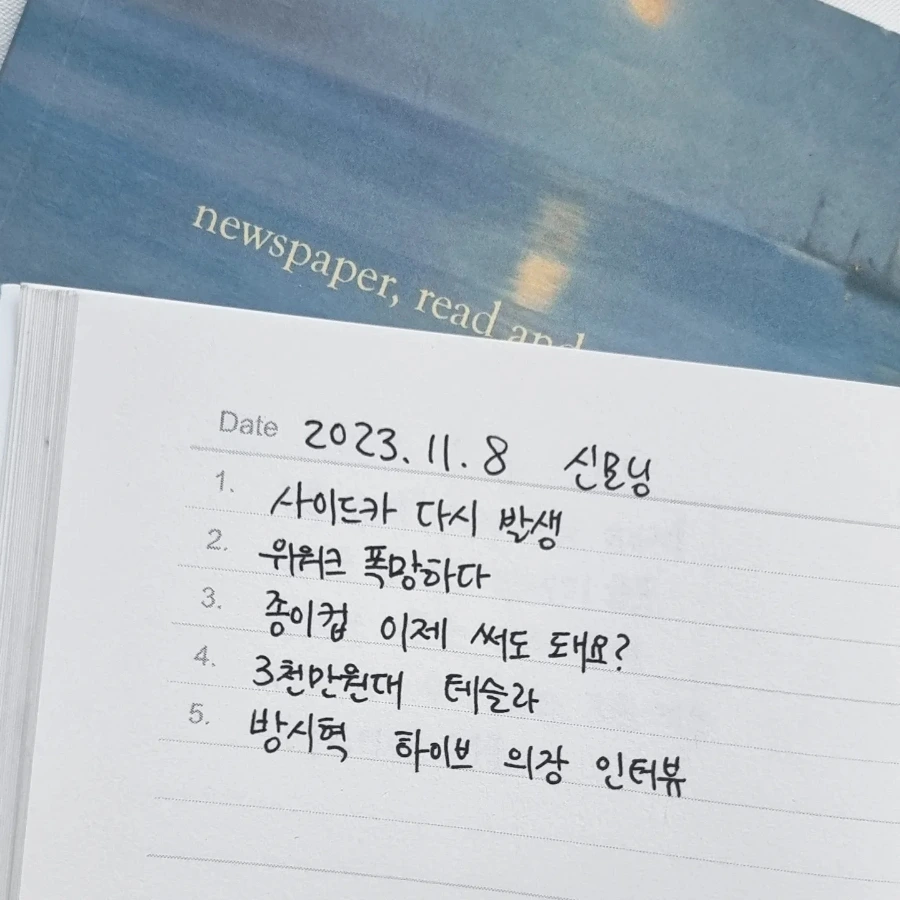 newspaper, read and
Date 2023.11.8 신모닝
1. 사이드카 다시 발생
2. 위워크 폭망하다
3. 종이컵 이제 써도 돼요?
4. 3천만원대 테슬라
5. 방시혁 하이브 의장 인터뷰